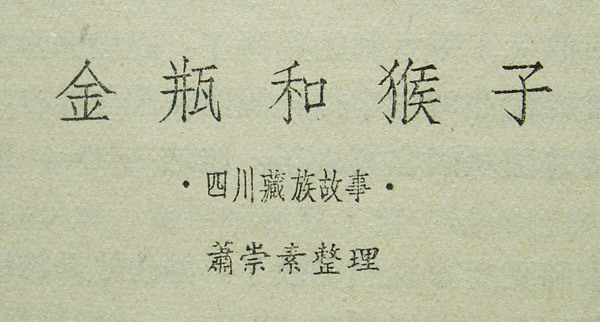 金瓶和猴子
·四川藏族故事·
蕭崇素整理